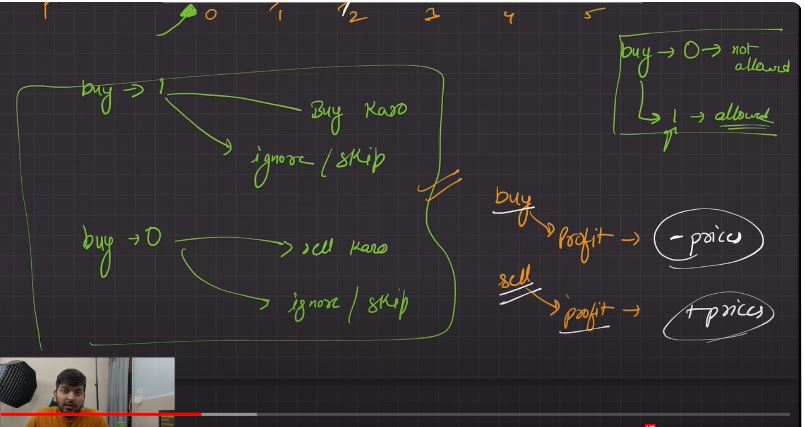 0 1 2 3 4 5
buy → 0 → not allowed
1 → allowed
buy → 1
Buy Karo
ignore / skip
buy → 0
sell Karo
ignore / skip
buy
Profit → - prices
sell
profit → + prices